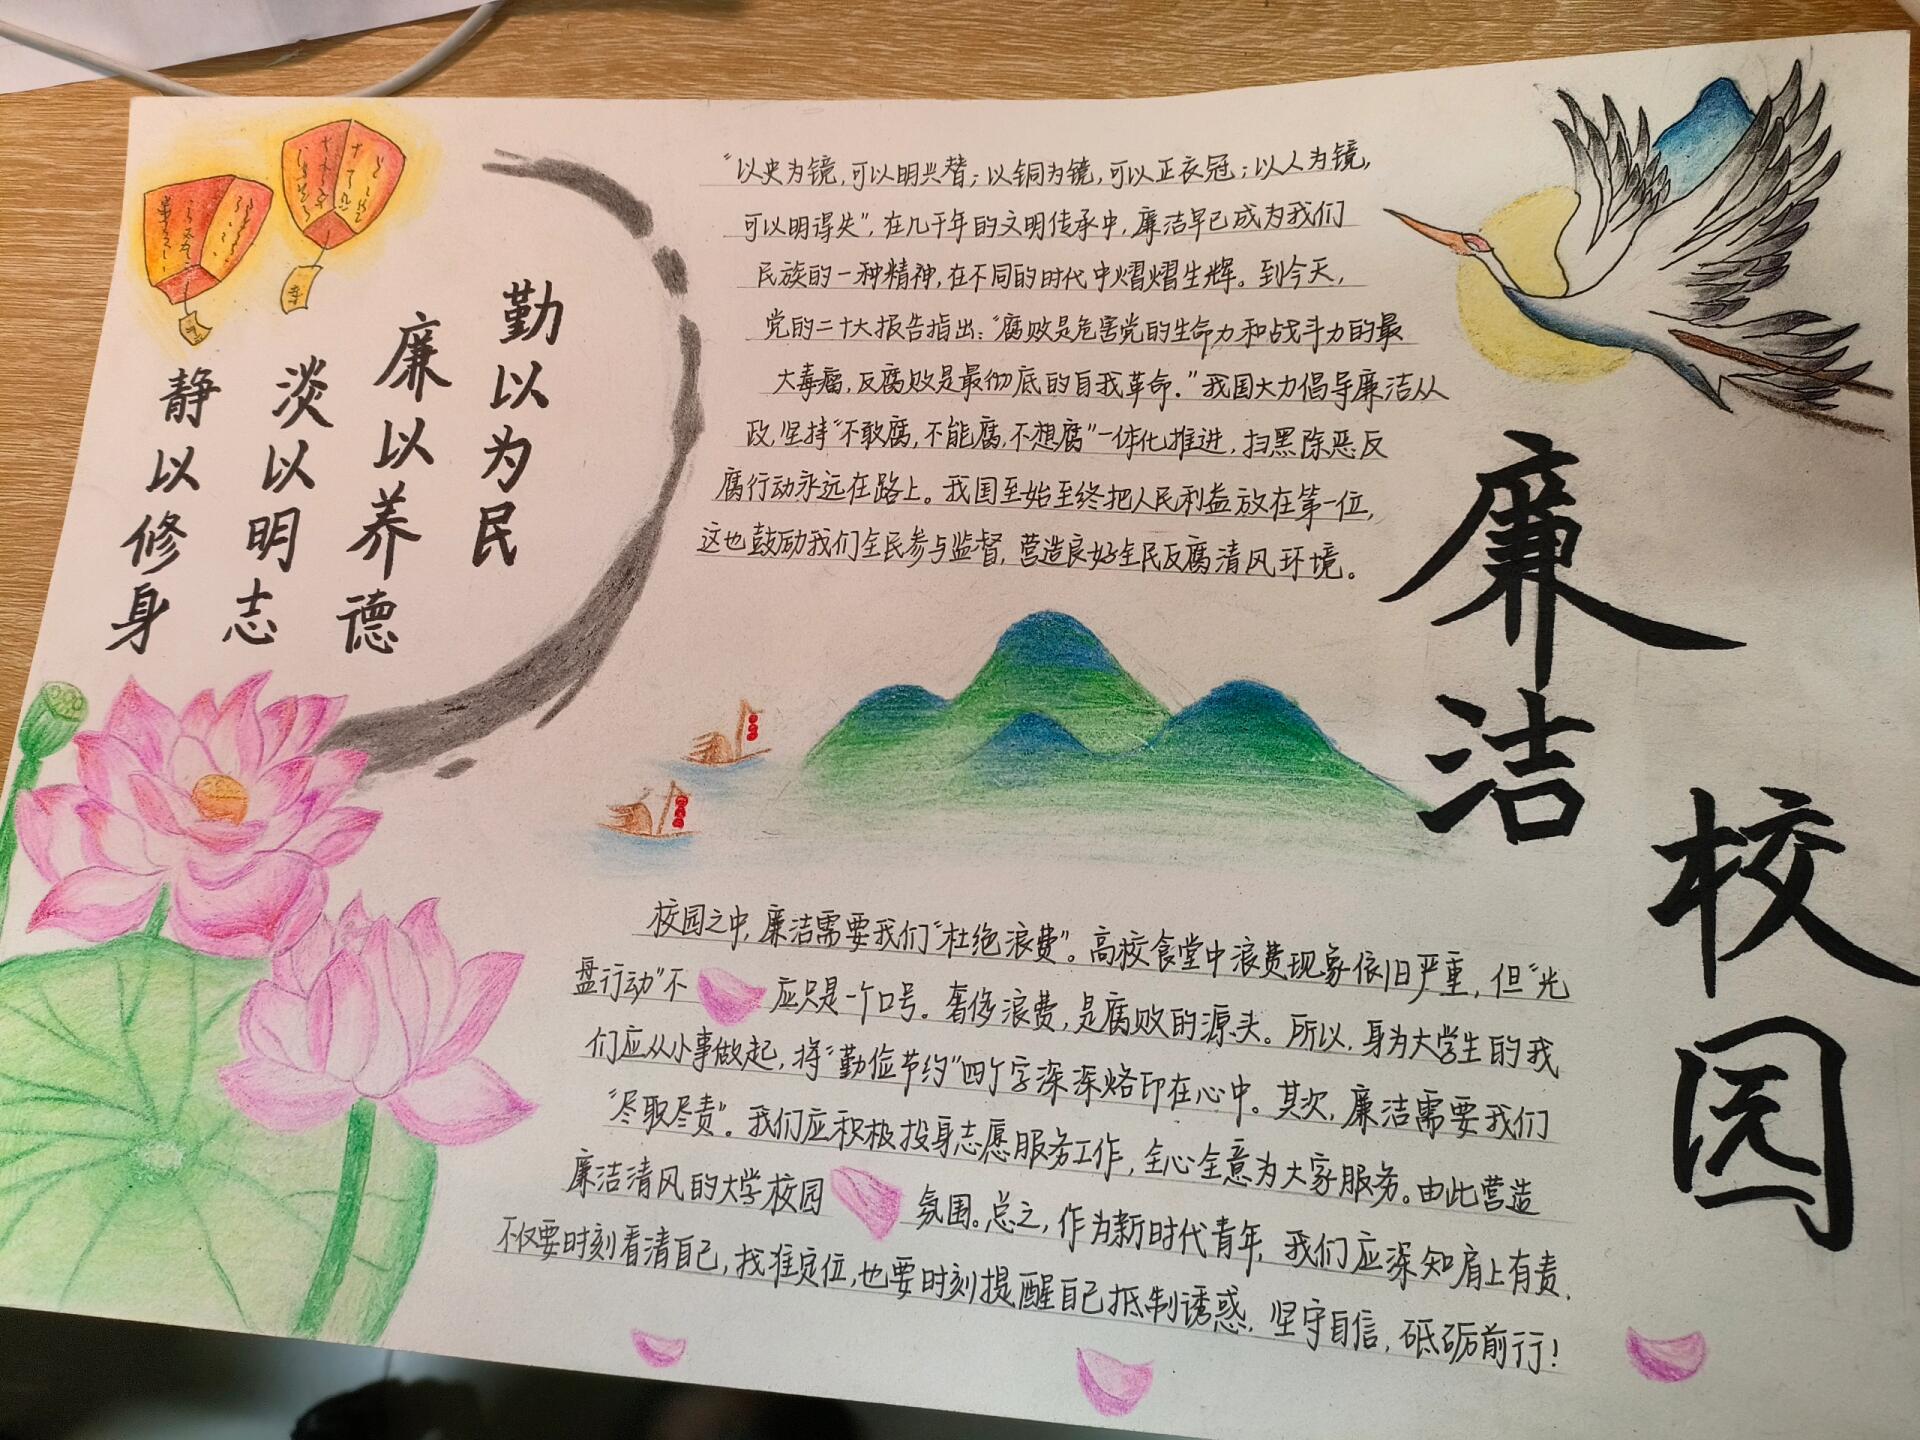 廉洁
校园
勤以为民
廉以养德
淡以明志
静以修身
“以史为镜，可以明兴替；以铜为镜，可以正衣冠；以人为镜，
可以明得失”，在几千年的文明传承中，廉洁早已成为我们
民族的一种精神，在不同的时代中熠熠生辉。到今天，
党的二十大报告指出：“腐败是危害党的生命力和战斗力的最
大毒瘤，反腐败是最彻底的自我革命。”我国大力倡导廉洁从
政，坚持“不敢腐，不能腐，不想腐”一体化推进，扫黑除恶反
腐行动永远在路上。我国至始至终把人民利益放在第一位，
这也鼓励我们全民参与监督，营造良好全民反腐清风环境。
校园之中，廉洁需要我们“杜绝浪费”。高校食堂中浪费现象依旧严重，但“光
盘行动”不应只是一个口号。奢侈浪费，是腐败的源头。所以，身为大学生的我
们应从小事做起，将“勤俭节约”四个字深深烙印在心中。其次，廉洁需要我们
“尽职尽责”。我们应积极投身志愿服务工作，全心全意为大家服务。由此营造
廉洁清风的大学校园氛围。总之，作为新时代青年，我们应深知肩上有责，
不仅要时刻看清自己，找准定位，也要时刻提醒自己抵制诱惑，坚守自信，砥砺前行！